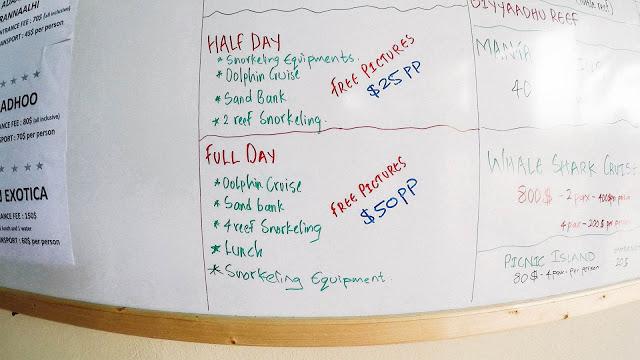 RANNAALHI
ENTRANCE FEE : 70$ (all inclusive)
TRANSPORT : 45$ per person
ADHOO
ANCE FEE : 80$ (all inclusive)
SPORT : 70$ per person
EXOTICA
ANCE FEE : 150$
SPORT : 60$ per person
HALF DAY
* Snorkeling Equipments.
* Dolphin Cruise
* Sand Bank
* 2 reef Snorkeling.
FREE PICTURES
$25 PP
FULL DAY
* Dolphin Cruise
* Sand bank
* 4 reef Snorkeling
* Lunch
* Snorkeling Equipment.
FREE PICTURES
$50 PP
DIYYAADHU REEF
MANTA
40
WHALE SHARK CRUISE
800$ - 2 pax - 400$ per person
4 pax - 200$ per person
PICNIC ISLAND
80$ - 4 pax - per person
20$